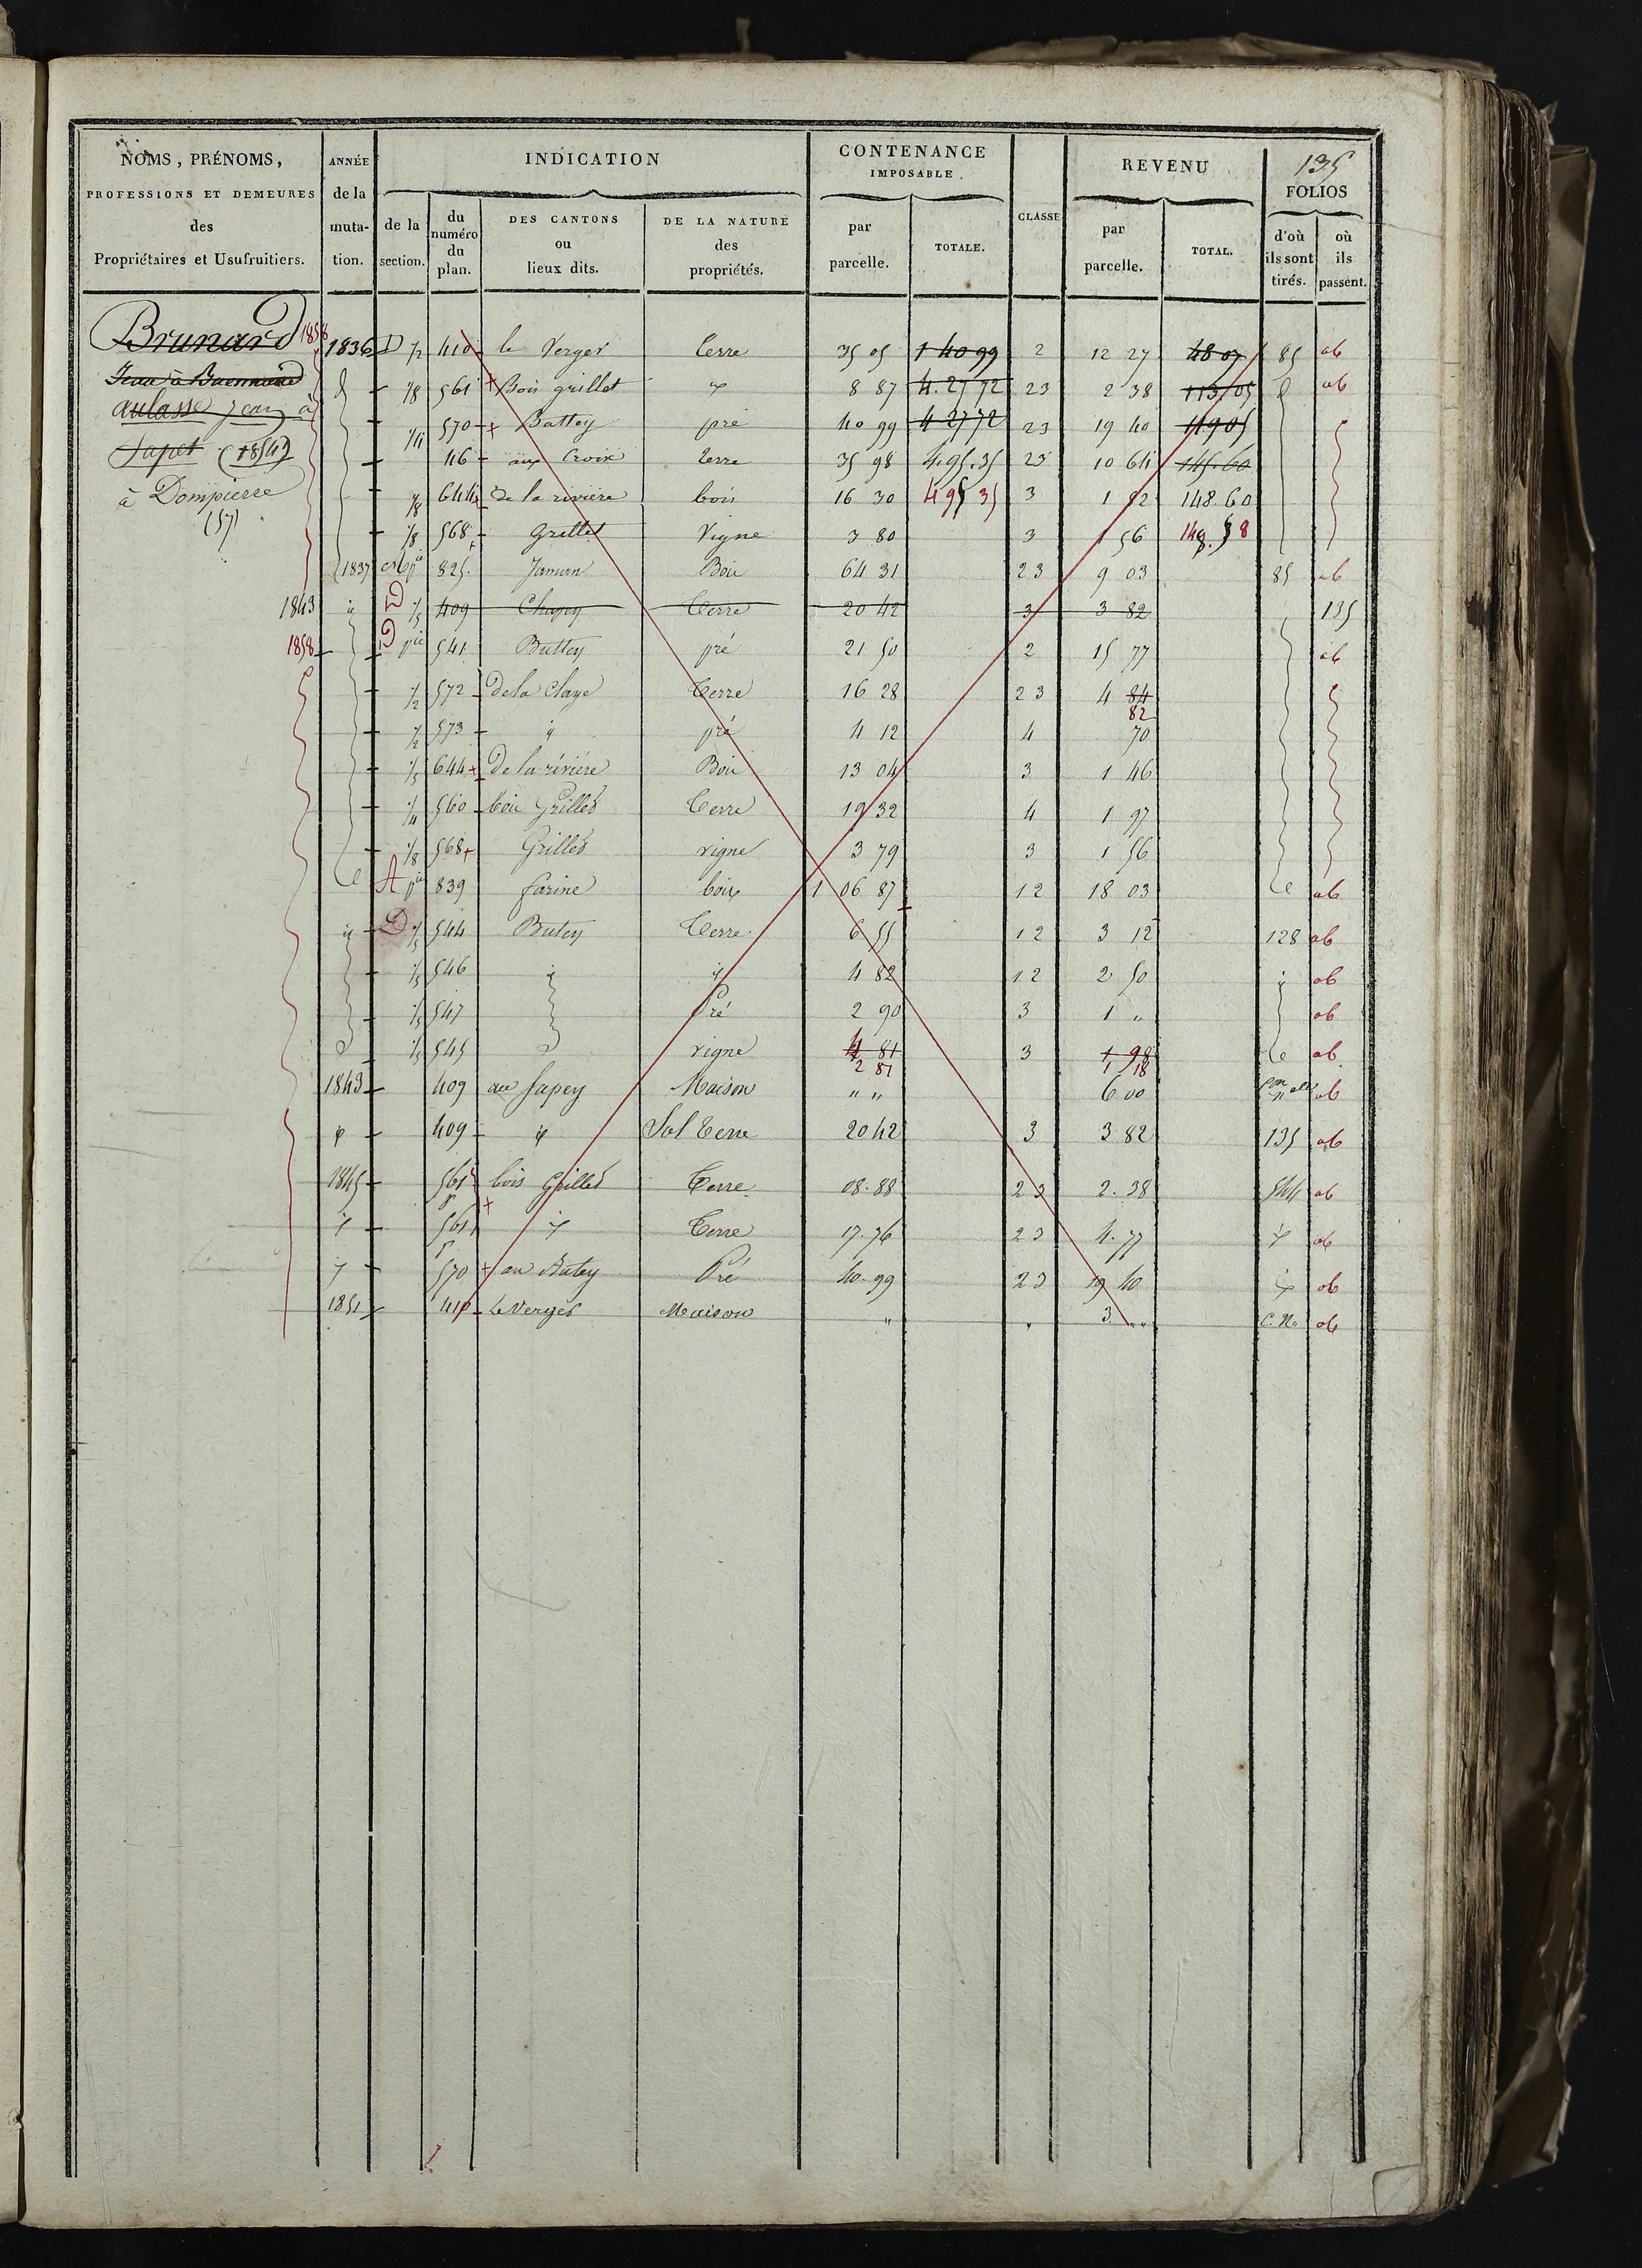 135
NOMS, PRÉNOMS, PROFESSIONS ET DEMEURES des Propriétaires et Usufruitiers.
ANNÉE de la mutation.
INDICATION
de la section.
du numéro du plan.
DES CANTONS ou lieux dits.
DE LA NATURE des propriétés.
CONTENANCE IMPOSABLE.
par parcelle.
TOTALE.
CLASSE
REVENU
par parcelle.
TOTAL.
FOLIOS
d'où ils sont tirés.
où ils passent.
Brunard 1858
Jean à
aulasse Jean à
Sapet (1854)
à Dompierre
(57)
1836 D 1/2 410 le Verger terre 35 05 1 40 99 2 12 27 48 07 85 ab
1/8 561 Bois grillet 8 87 4.27 72 23 2 38 113.05 ab
1/4 570 Battey pré 40 99 4 27 72 23 19 40 119 05
116 aux Croix terre 35 98 4.95.35 23 10 64 145.60
1/8 644 de la rivière bois 16 30 495 35 3 1 82 148.60
1/8 568 Grillet Vigne 3 80 3 1 56
1837 pie 825 Bois 64 31 23 9 03 85 ab
1843 1/5 409 Terre 20 42 3 3 82 135
1858 D pie 541 Battey pré 21 50 2 15 77 ab
1/2 572 de la Claye Terre 16 28 23 4 84
82
1/2 573 pré 4 12 4 70
1/5 644 De la rivière Bois 13 04 3 1 46
1/4 560 bois Grilled Terre 19 32 4 1 97
1/8 568 Grilled vigne 3 79 3 1 56
A pie 839 farine bois 1 06 87 12 18 03 ab
D 1/5 544 Butey Terre 6 55 12 3 12 128 ab
1/5 546 4 82 12 2 50 ab
1/5 547 Pré 2 90 3 1 " ab
1/5 545 vigne 4 81 3 1 98 ab
2 81 1 18
1843 409 au Sapey Maison " " 6 00 ab
409 Sol terre 20 42 3 3 82 135 ab
1845 561 bois Grilled Terre 08.88 23 2.38 544 ab
561 Terre 17.76 23 4.77 ab
570 au Batey Pré 40.99 23 19 40 ab
1851 410 Le Verger Maison " " 3 " " C.N. ab